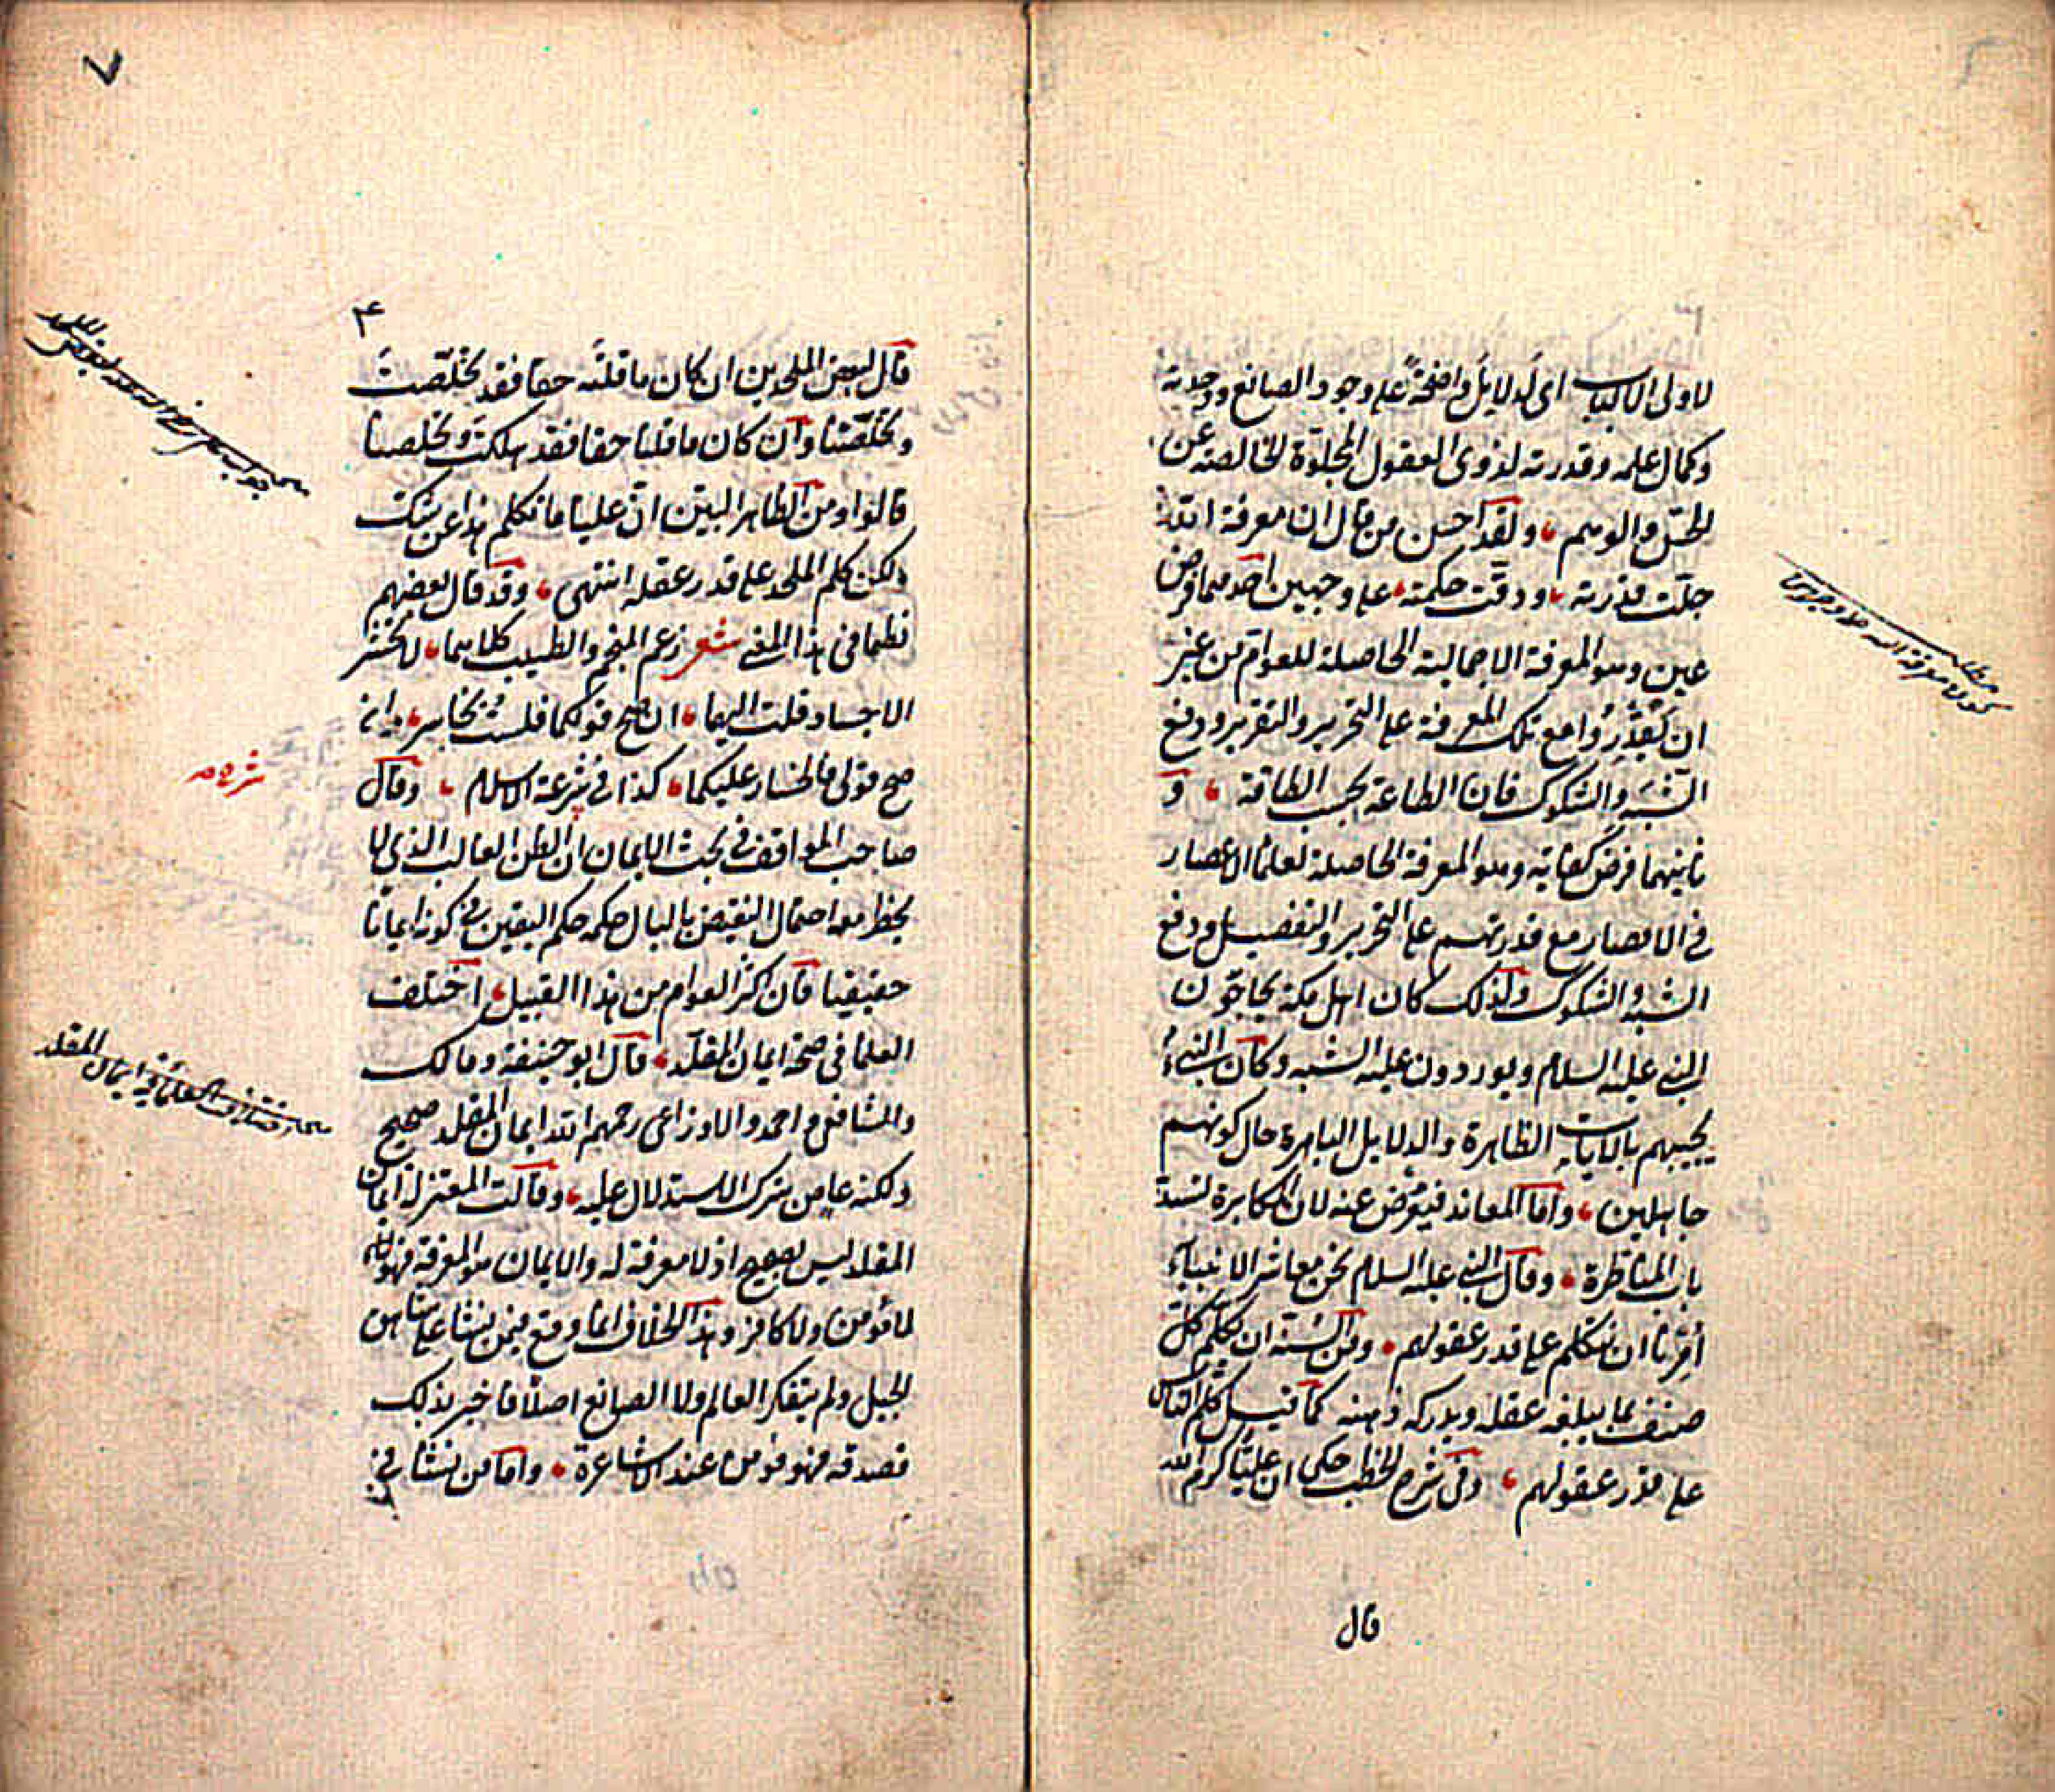 لاولى الالباب اى لدلايل واضحة على وجود الصانع ووحدته
وكمال علمه وقدرته لذوى العقول المجلوة الخالصة عن
الحس والوهم ولقد احسن من قال ان معرفة الله
جلت قدرته ودقت حكمته على وجهين احدهما فرض
عين وهو المعرفة الاجمالية الحاصلة للعوام من غير
ان تقدروا مع تلك المعرفة على التحرير والتقرير ودفع
الشبه والشكوك فان الطاعة بحسب الطاقة و
ثانيهما فرض كفاية وهو المعرفة الحاصلة لعلماء الاعصار
فى الامصار مع قدرتهم على التحرير والتفصيل ودفع
الشبه والشكوك ولذلك كان اهل مكة يحاجون
النبى عليه السلام ويوردون عليه الشبه وكان النبى
يجيبهم بالايات الظاهرة والدلايل الباهرة حال كونهم
جاهلين واما المعاند فيعرض عنه لان المكابرة لسد
باب المناظرة وقال النبى عليه السلام نحن معاشر الانبياء
امرنا ان نتكلم على قدر عقولهم ومن السنة ان تكلم كل
صنف بما يبلغه عقله ويدركه ذهنه كما قيل كلم الناس
على قدر عقولهم وفى شرح الخطب حكى ان عليا كرم الله
قال
٧
۴
قال لبعض الملحدين ان كان ما قلته حقا فقد تخلصت
وتخلصنا وان كان ما قلنا حقا فقد هلكت وتخلصنا
قالوا ومن الظاهر البين ان عليا ما تكلم هذا عن شك
ولكن كلم الملحد على قدر عقله انتهى وقد قال بعضهم
نظما فى هذا المعنى شعر زعم المنجم والطبيب كلاهما لا تحشر
الاجساد قلت اليهما ان صح قولكما فلست بخاسر وان
صح قولى فالخسار عليكما كذا فى شرعة الاسلام وقال
صاحب المواقف فى بحث الايمان ان الظن الغالب الذى لا
يخطر معه احتمال النقيض بالبال حكمه حكم اليقين فى كونه ايمانا
حقيقيا فان اكثر العوام من هذا القبيل اختلف
العلماء فى صحة ايمان المقلد قال ابو حنيفة ومالك
والشافعى واحمد والاوزاعى رحمهم الله ايمان المقلد صحيح
ولكنه عاص بترك الاستدلال عليه وقالت المعتزلة ايمان
المقلد ليس بصحيح اذ لا معرفة له والايمان هو المعرفة فهو
لا مؤمن ولا كافر وهذا الخلاف انما وقع فيمن نشأ على شاهق
الجبل ولم يتفكر العالم ولا الصانع اصلا فاخبر بذلك
فصدقه فهو مؤمن عند الاشاعرة واما من نشأ فى